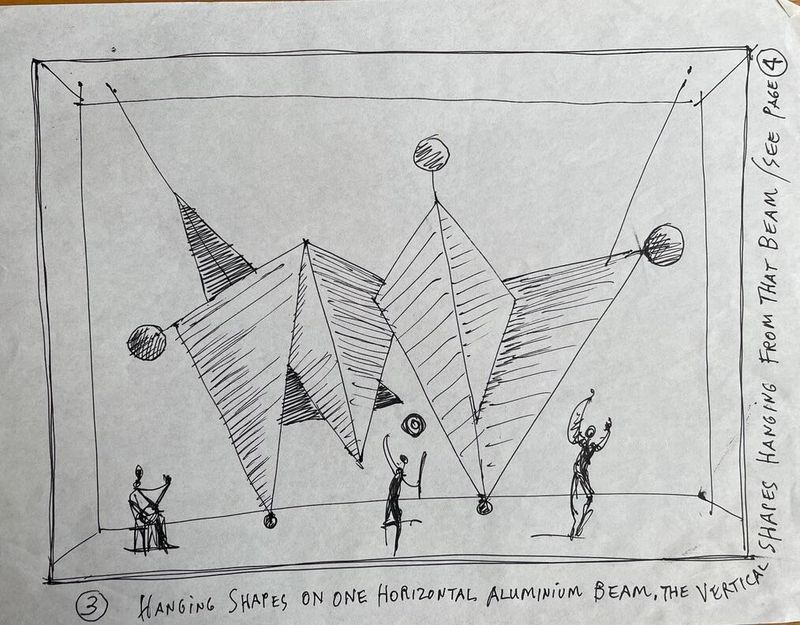 ③ HANGING SHAPES ON ONE HORIZONTAL ALUMINIUM BEAM, THE VERTICAL
SHAPES HANGING FROM THAT BEAM / SEE PAGE ④